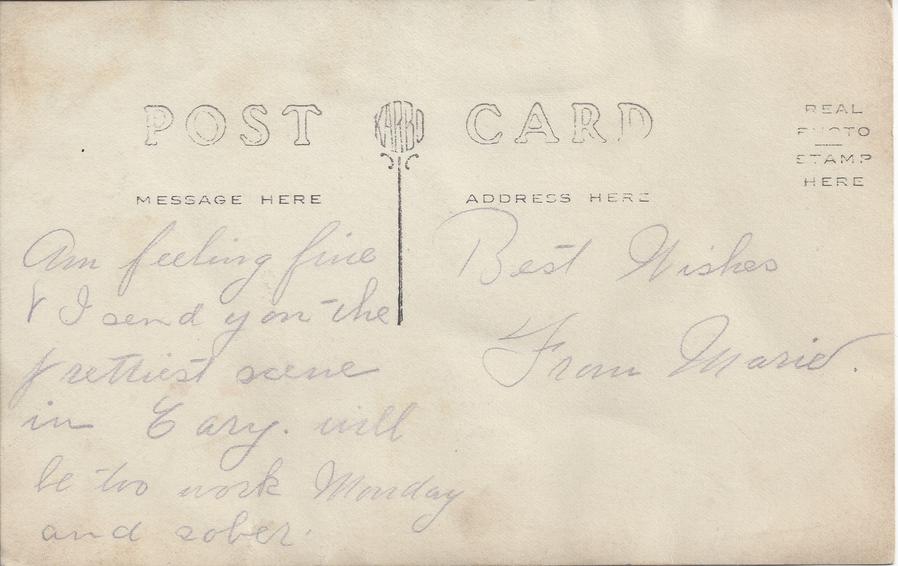 POST CARD
KARBO
REAL
PHOTO
STAMP
HERE
MESSAGE HERE
ADDRESS HERE
Am feeling fine
& I send you the
prettiest scene
in Cary. will
be too work Monday
and sober.
Best Wishes
From Marie.